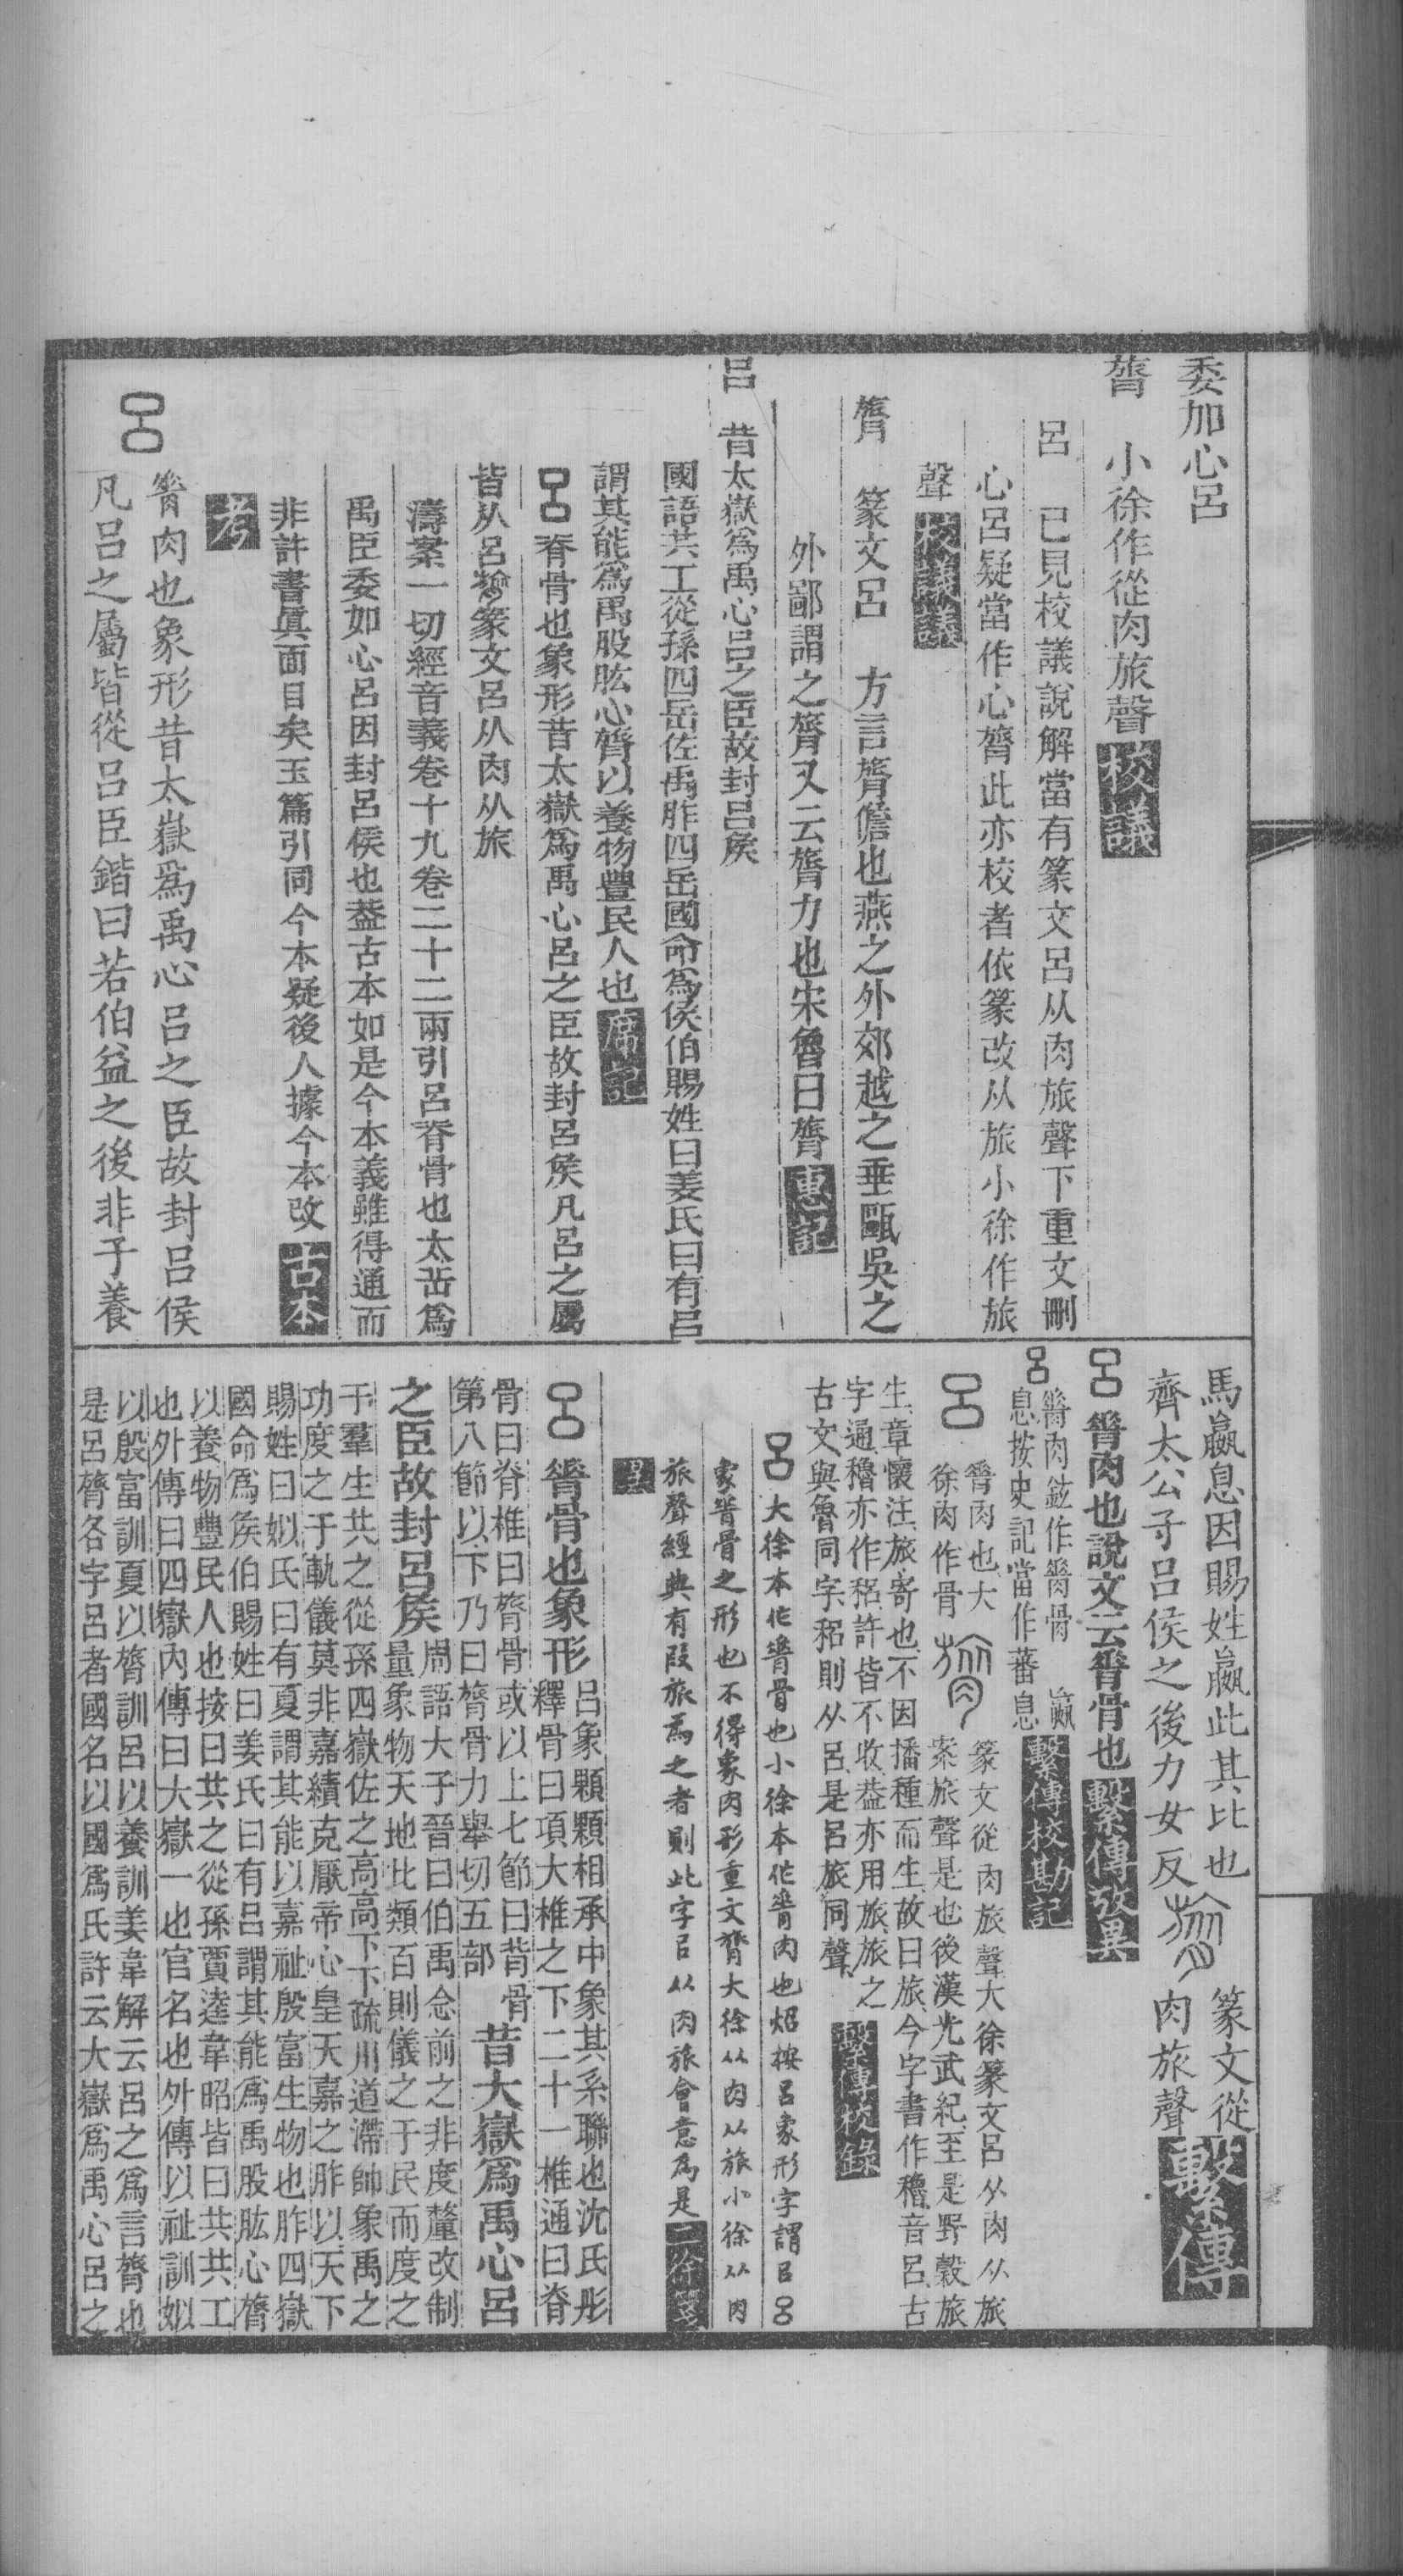 委加心呂
膂　小徐作從肉旅聲校議
呂　已見校議說解當有篆文呂从肉旅聲下重文刪
心呂疑當作心膂此亦校者依篆改从旅小徐作旅
聲校議議
膂　篆文呂　方言膂儋也燕之外郊越之垂甌吳之
外鄙謂之膂又云膂力也宋魯曰膂惠記
呂　昔太嶽爲禹心呂之臣故封呂矦
國語共工從孫四岳佐禹胙四岳國命爲侯伯賜姓曰姜氏曰有呂
謂其能爲禹股肱心膂以養物豐民人也席記
呂脊骨也象形昔太嶽爲禹心呂之臣故封呂矦凡呂之屬
皆从呂膂篆文呂从肉从旅
濤案一切經音義卷十九卷二十二兩引呂脊骨也太岳爲
禹臣委如心呂因封呂侯也葢古本如是今本義雖得通而
非許書眞面目矣玉篇引同今本疑後人據今本改古本
考
呂　脊肉也象形昔太嶽爲禹心呂之臣故封呂侯
凡呂之屬皆從呂臣鍇曰若伯益之後非子養
馬蠃息因賜姓嬴此其比也膂篆文從
齊太公子呂侯之後力女反　肉旅聲繫傳
呂脊肉也說文云脊骨也繫傳攷異
呂脊肉鉉作脊骨　嬴
息按史記當作蕃息繫傳校勘記
呂　脊肉也大
徐肉作骨　膂　篆文從肉旅聲大徐篆文呂从肉从旅
案旅聲是也後漢光武紀至是野穀旅
生章懷注旅寄也不因播種而生故曰旅今字書作穭音呂古
字通穭亦作稆許皆不收葢亦用旅旅之
古文與魯同字稆則从呂是呂旅同聲繫傳校錄
呂大徐本作脊骨也小徐本作脊肉也炤按呂象形字謂吕呂
象脊骨之形也不得象肉形重文膂大徐从肉从旅小徐从肉
旅聲經典有叚旅爲之者則此字吕从肉旅會意爲是二徐箋
異
呂　脊骨也象形呂象顆顆相承中象其系聯也沈氏彤
釋骨曰項大椎之下二十一椎通曰脊
骨曰脊椎曰膂骨或以上七節曰背骨
第八節以下乃曰膂骨力舉切五部　昔大嶽爲禹心呂
之臣故封呂矦周語大子晉曰伯禹念前之非度釐改制
量象物天地比類百則儀之于民而度之
于羣生共之從孫四嶽佐之高高下下疏川道滯帥象禹之
功度之于軌儀莫非嘉績克厭帝心皇天嘉之胙以天下
賜姓曰姒氏曰有夏謂其能以嘉祉殷富生物也胙四嶽
國命爲矦伯賜姓曰姜氏曰有呂謂其能爲禹股肱心膂
以養物豐民人也按曰共之從孫賈逵韋昭皆曰共共工
也外傳曰四嶽內傳曰大嶽一也官名也外傳以祉訓姒
以殷富訓夏以膂訓呂以養訓姜韋解云呂之爲言膂也
是呂膂各字呂者國名以國爲氏許云大嶽爲禹心呂之